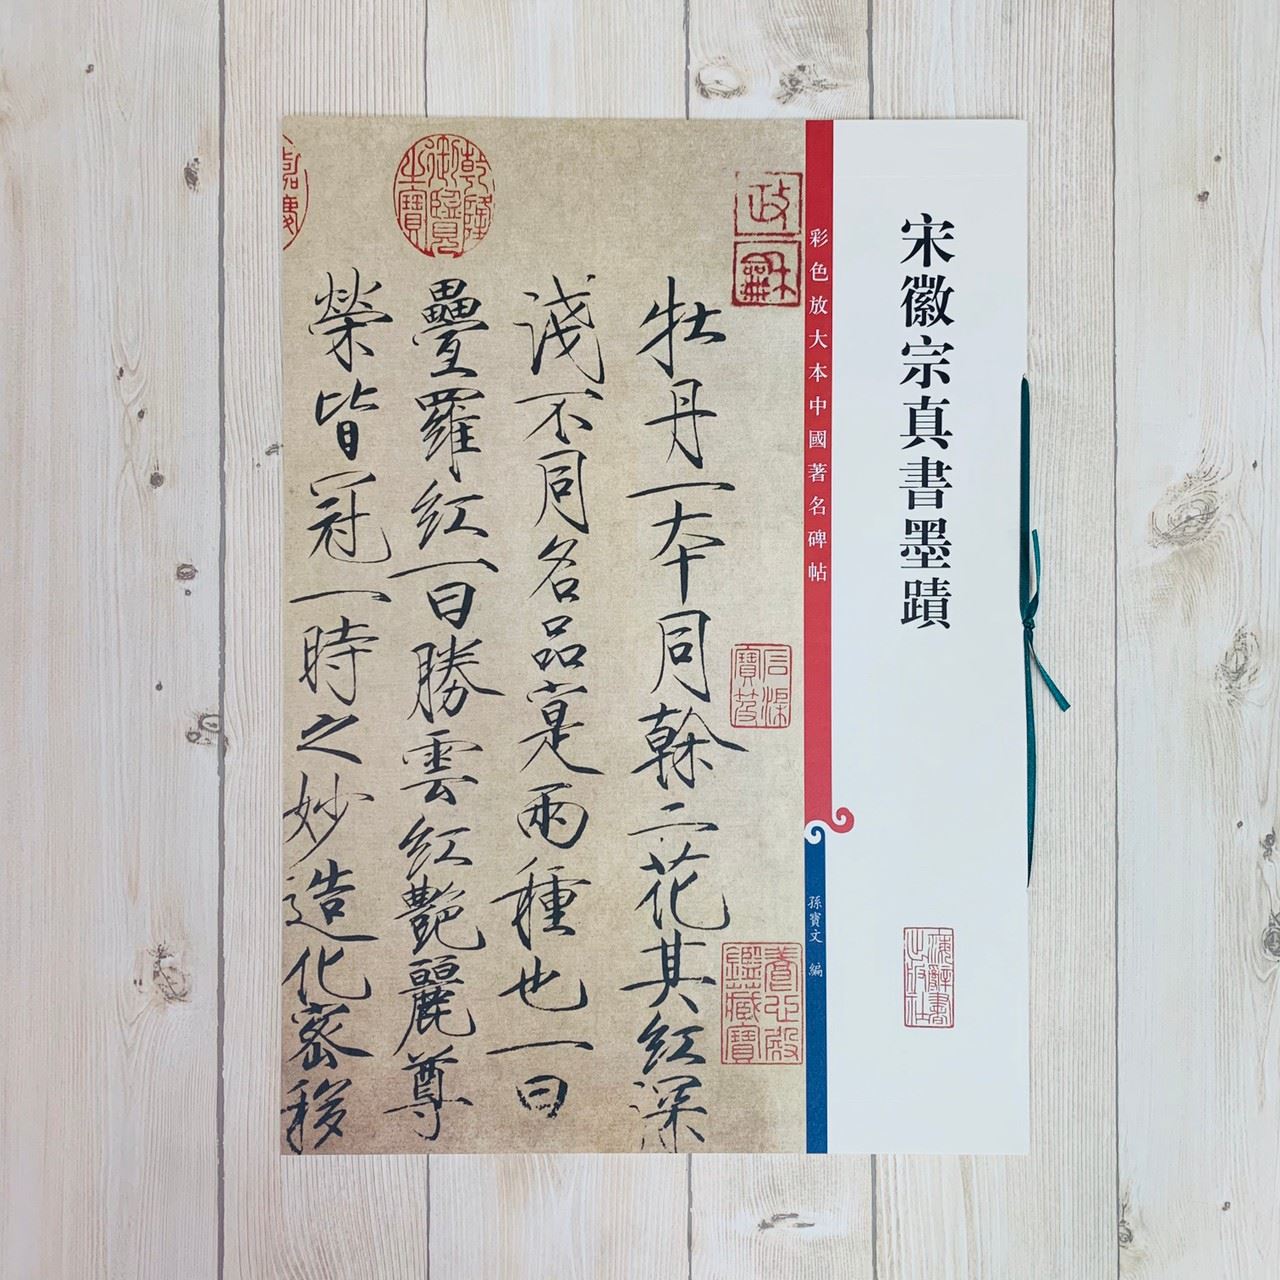 宋徽宗真書墨蹟
海辭書出版社
彩色放大本中國著名碑帖
孫寶文 編
政
龢
石渠寶笈
養心殿鑑藏寶
牡丹一本同榦二花其紅深
淺不同名品寔兩種也一曰
疊羅紅一曰勝雲紅艷麗尊
榮皆冠一時之妙造化密移
乾隆御覽之寶
嘉慶